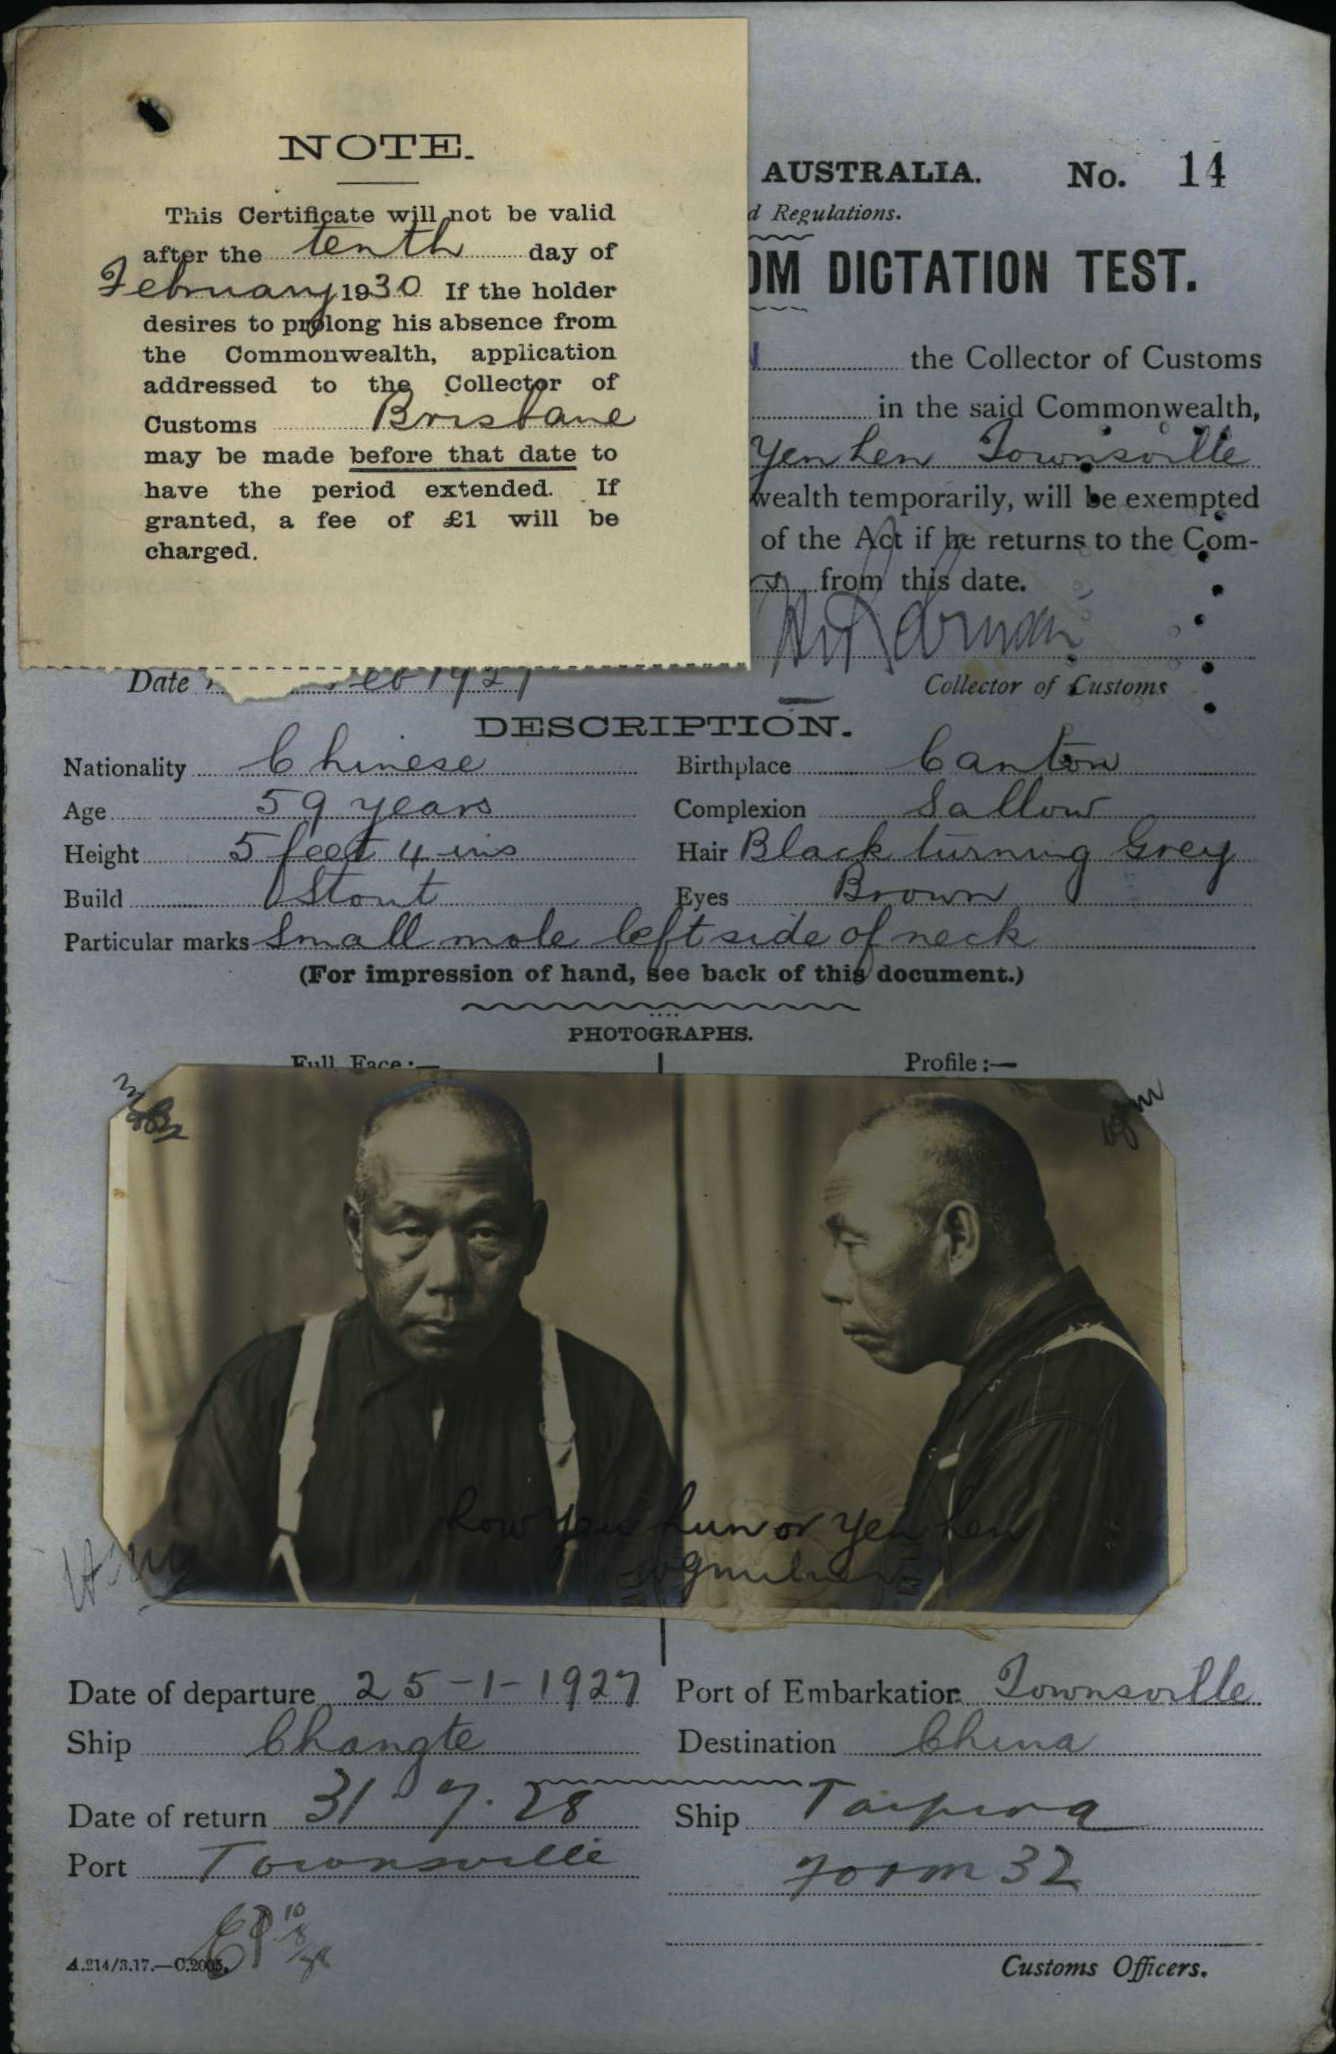 NOTE.
This Certificate will not be valid
after the tenth day of
February 1930 If the holder
desires to prolong his absence from
the Commonwealth, application
addressed to the Collector of
Customs Brisbane
may be made before that date to
have the period extended. If
granted, a fee of £1 will be
charged.
AUSTRALIA. No. 14
d Regulations.
OM DICTATION TEST.
the Collector of Customs
in the said Commonwealth,
Yen hen Townsville
wealth temporarily, will be exempted
of the Act if he returns to the Com-
from this date.
Date Feb 1927
Collector of Customs
DESCRIPTION.
Nationality Chinese Birthplace Canton
Age 59 years Complexion Sallow
Height 5 feet 4 ins Hair Black turning Grey
Build Stout Eyes Brown
Particular marks Small mole left side of neck
(For impression of hand, see back of this document.)
PHOTOGRAPHS.
Full Face:— Profile:—
how yen hun or yen hen
Date of departure 25-1-1927 Port of Embarkation Townsville
Ship Changte Destination China
Date of return 31.7.28 Ship Taiping
Port Townsville Form 32
A.214/3.17.—C.2005. Customs Officers.